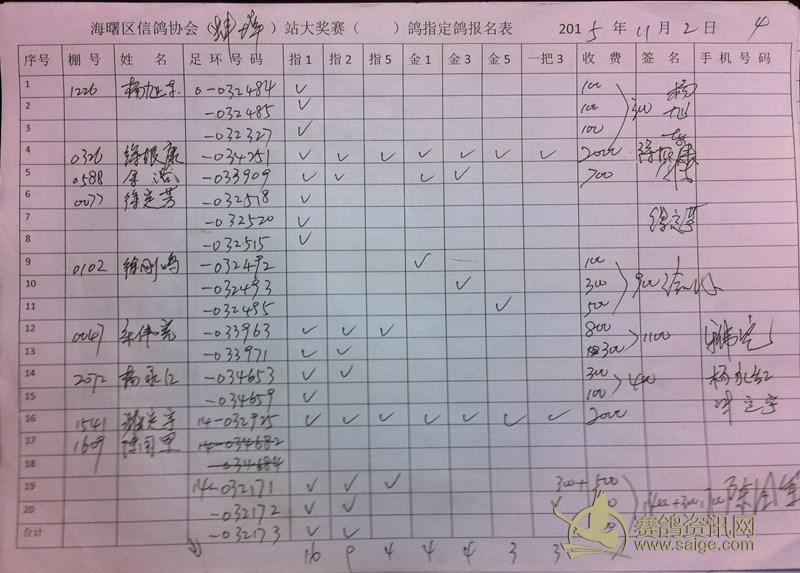 海曙区信鸽协会（蚌埠）站大奖赛（ ）鸽指定鸽报名表 2015年11月2日 4
序号 棚号 姓名 足环号码 指1 指2 指5 金1 金3 金5 一把3 收费 签名 手机号码
1 1226 0-032484 ✓ 100
2 -032485 ✓ 100 300
3 -032327 ✓ 100
4 0326 徐银康 -034251 ✓ ✓ ✓ ✓ ✓ ✓ ✓ 2000 徐银康
5 0588 -033909 ✓ ✓ ✓ ✓ 700
6 0077 徐定芳 -032518 ✓
7 -032520 ✓ 徐定芳
8 -032515 ✓
9 0102 徐刚鸣 -032492 ✓ 100
10 -032493 ✓ 300 900
11 -032495 ✓ 500
12 0047 -033963 ✓ ✓ ✓ 800 1100
13 -033971 ✓ ✓ 300
14 2072 杨永红 -034653 ✓ ✓ 300 400 杨永红
15 -034659 ✓ 100
16 1541 14-032925 ✓ ✓ ✓ ✓ ✓ ✓ ✓ 2000
17 1609 14-034682
18 -034684
19 14-032171 ✓ ✓ ✓ 300+500
20 -032172 ✓ ✓ ✓
合计 -032173 ✓ ✓
16 9 4 4 4 3 3
赛鸽资讯网
www.saige.com